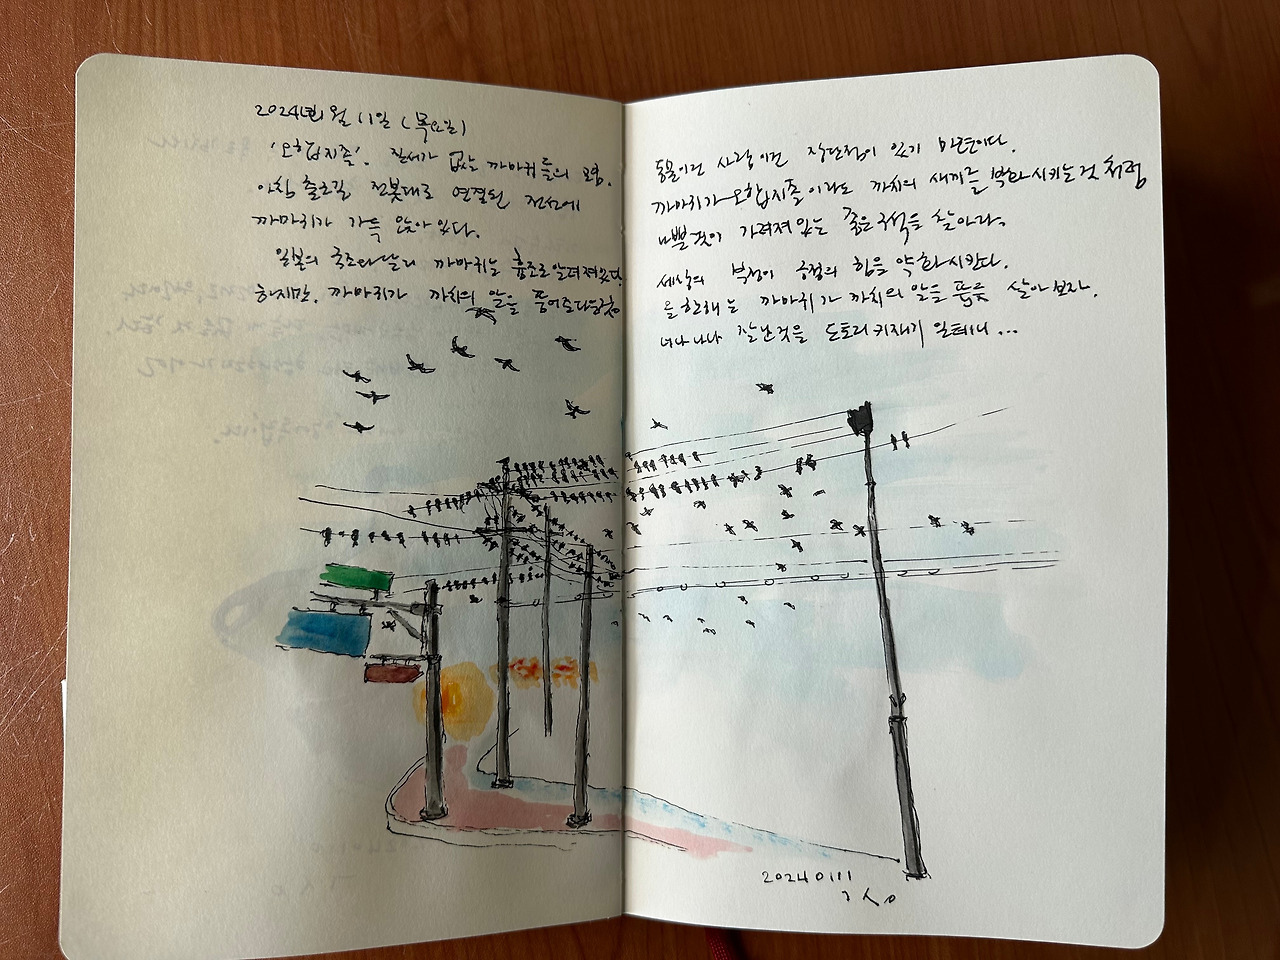 2024년 1월 11일 (목요일)
'오합지졸'. 질서가 없는 까마귀들의 모임.
아침 출근길 전봇대로 연결된 전선에
까마귀가 가득 앉아 있다.
일본의 국조와 달리 까마귀는 흉조로 알려져 있다.
하지만, 까마귀가 까치의 알을 품어준다는 것
동물이건 사람이건 장단점이 있기 마련이다.
까마귀가 오합지졸이라도 까치의 새끼를 부화시키는 것 처럼
나쁜 것이 가려져 있는 좋은 구석을 찾아라.
세상의 부정이 긍정의 힘을 약화시킨다.
올 한해는 까마귀가 까치의 알을 품듯 살아보자.
너나 나나 잘난 것을 도토리 키재기 일테니...
20240111